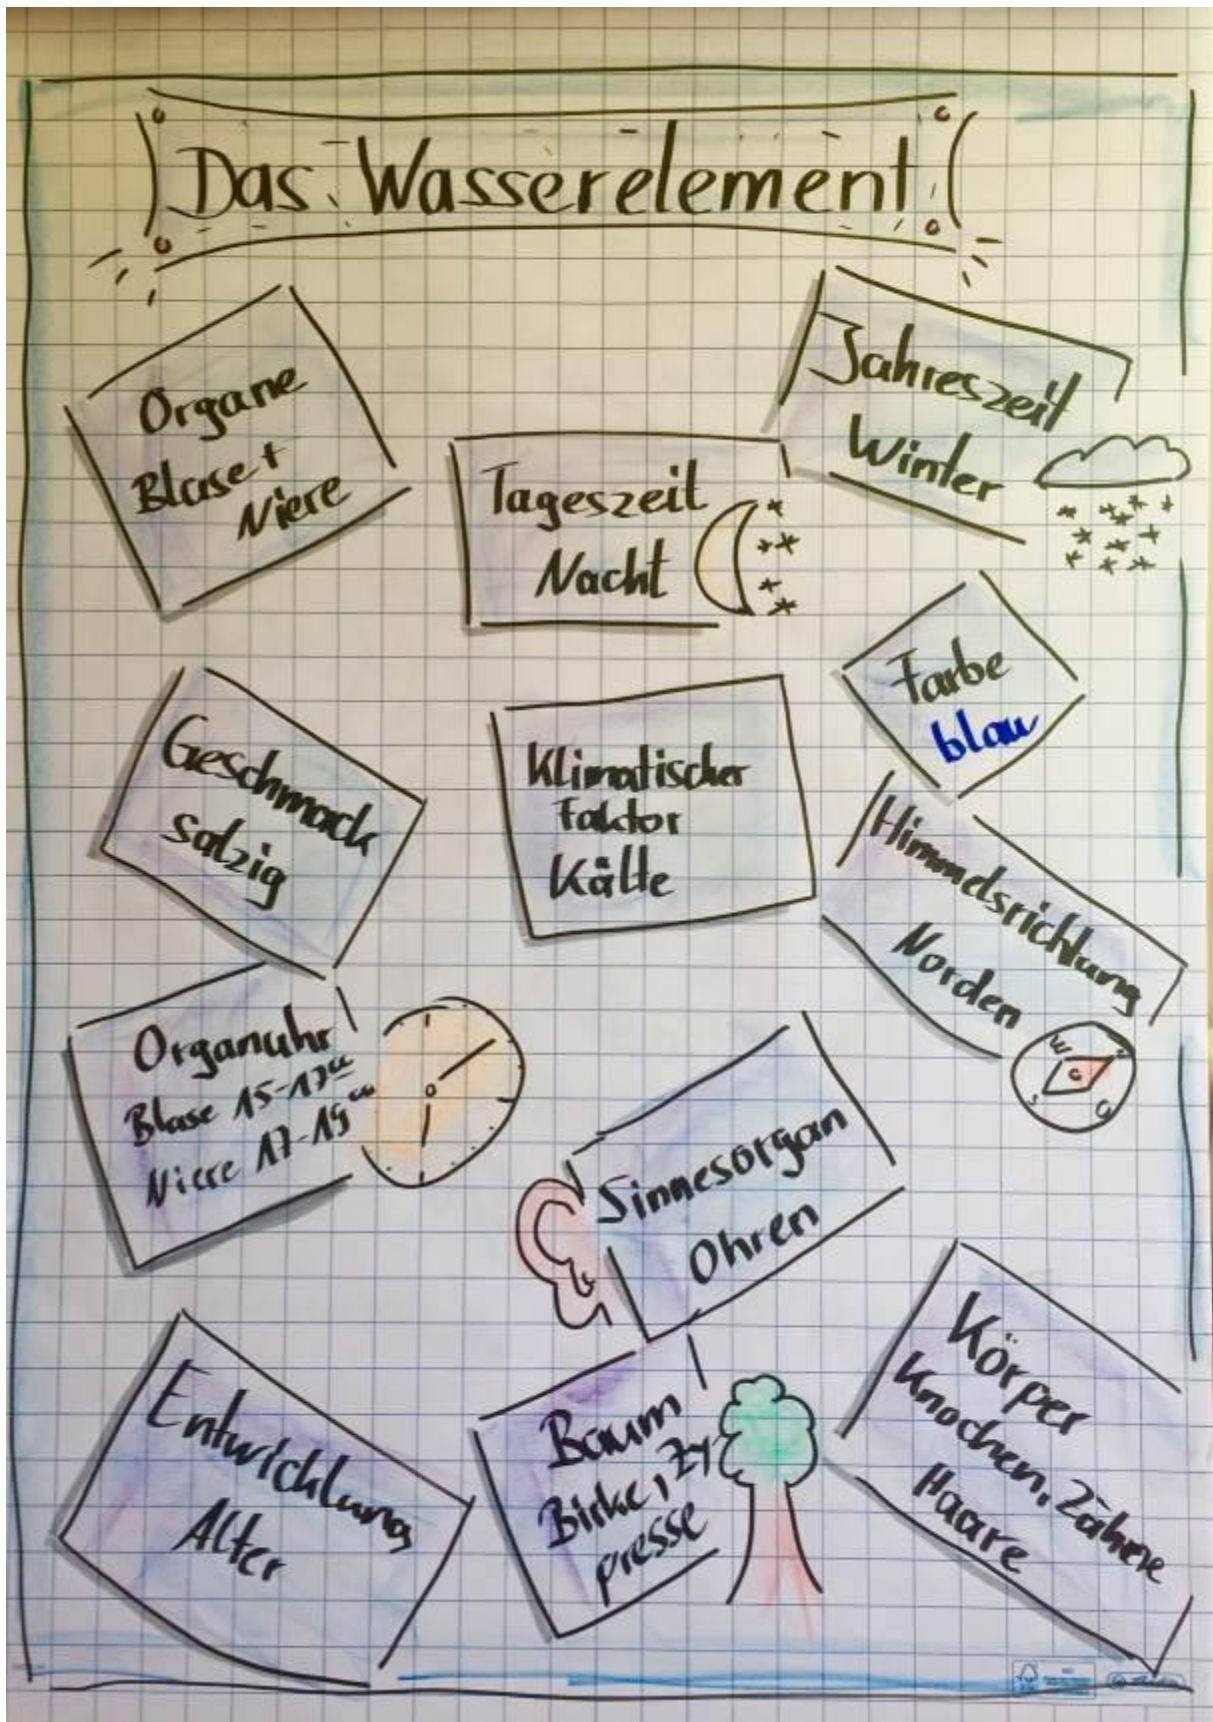 Das Wasserelement
Organe
Blase +
Niere
Tageszeit
Nacht
Jahreszeit
Winter
Farbe
blau
Geschmack
salzig
Klimatischer
Faktor
Kälte
Himmelsrichtung
Norden
Organuhr
Blase 15-17⁰⁰
Niere 17-19⁰⁰
Sinnesorgan
Ohren
Entwicklung
Alter
Baum
Birke, Zy
presse
Körper
Knochen, Zähne
Haare